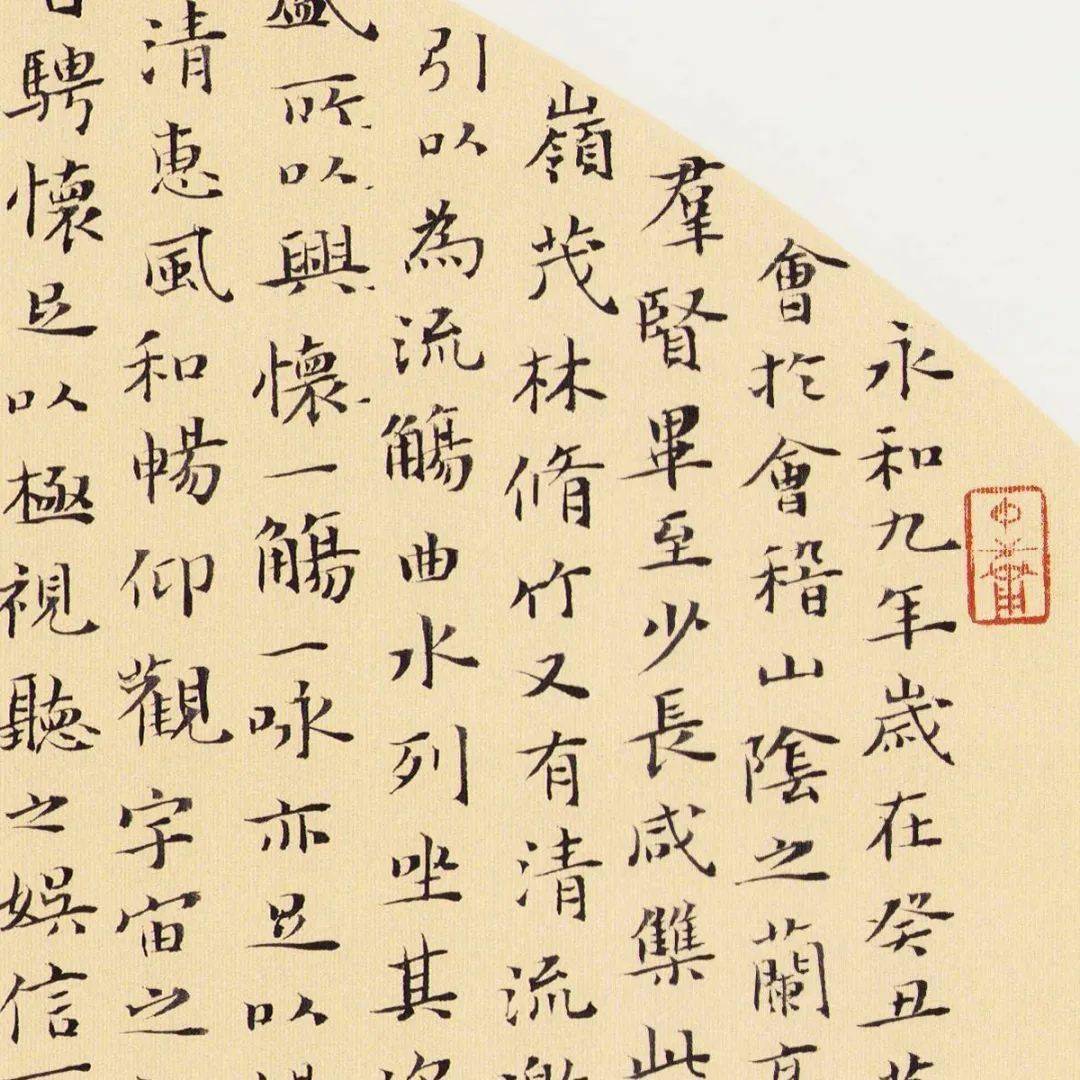 永和九年歲在癸丑
會於會稽山陰之蘭亭
羣賢畢至少長咸集此
嶺茂林脩竹又有清流激
引以為流觴曲水列坐其
盛所以興懷一觴一咏亦足以
清惠風和暢仰觀宇宙之
騁懷足以極視聽之娛信